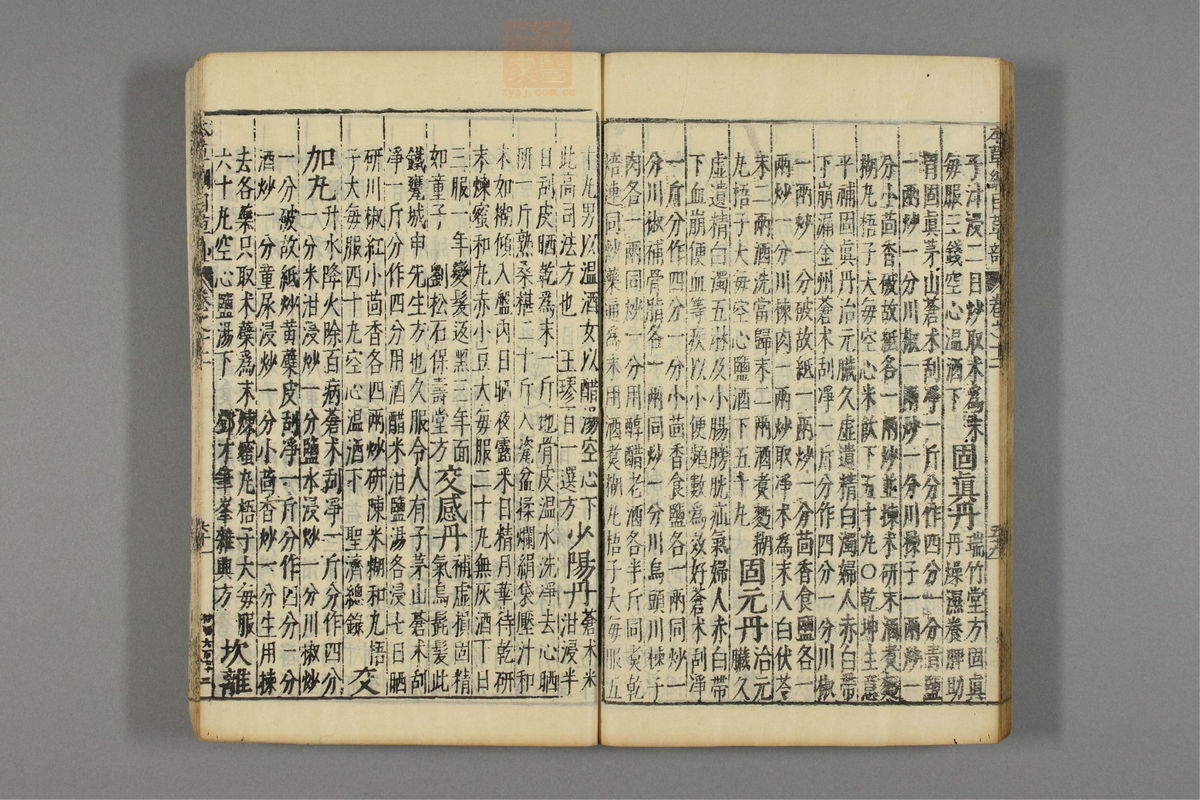 本草綱目草部 卷之十二
子汁浸二日炒取术為末
每服三錢空心温酒下 固真丹 瑞竹堂方固真
丹燥濕養脾助
胃固真茅山蒼术刮凈一斤分作四分一分青鹽
一兩炒一分川椒一兩炒一分川楝子一兩炒一
分小茴香破故紙各一兩炒並揀术研末酒煮麪
糊丸梧子大每空心米飲下五十丸〇乾坤生意
平補固真丹治元臟久虛遺精白濁婦人赤白帶
下崩漏金州蒼术刮凈一斤分作四分一分川椒
一兩炒一分川楝肉一兩炒取凈术為末入白伏苓
末二兩酒洗當歸末二兩酒煮麪糊 固元丹 治元
丸梧子大每空心鹽酒下五十丸 臟久
虛遺精白濁五淋及小腸膀胱疝氣婦人赤白帶
下血崩便血等疾以小便頻數為效好蒼术刮凈
一斤分作四分一分小茴香食鹽各一兩同炒一
分川椒補骨脂各一兩同炒一分川烏頭川楝子
肉各一兩同炒一分用醇醋老酒各半斤同煮乾
焙連同炒藥通為末用酒煮糊丸梧子大每服五
十丸男以温酒女以醋湯空心下 少陽丹 蒼术米
此高司法方也 王璆百一選方 泔浸半
日刮皮晒乾為末一斤地骨皮温水洗凈去心晒
研一斤熟桑椹二十斤入瓷盆揉爛絹袋壓汁和
末如糊傾入盤內日晒夜露采日精月華待乾研
末煉蜜和丸赤小豆大每服二十丸無灰酒下日
三服一年變髮返黑三年面 交感丹 補虛損固精
如童子 劉松石保壽堂方 氣烏髭髮此
鐵甕城申先生方也久服令人有子茅山蒼术刮
凈一斤分作四分用酒醋米泔鹽湯各浸七日晒
研川椒紅小茴香各四兩炒研陳米糊和丸梧
子大每服四十九空心温酒下 聖濟總錄 交
加丸 升水降火除百病蒼术刮凈一斤分作四分
一分米泔浸炒一分鹽水浸炒一分川椒炒
一分破故紙炒黃蘗皮刮凈一斤分作四分一分
酒炒一分童尿浸炒一分小茴香炒一分生用揀
去各藥只取术蘗為末煉蜜丸梧子大每服
六十丸空心鹽湯下 鄧才筆峯雜興方 坎離